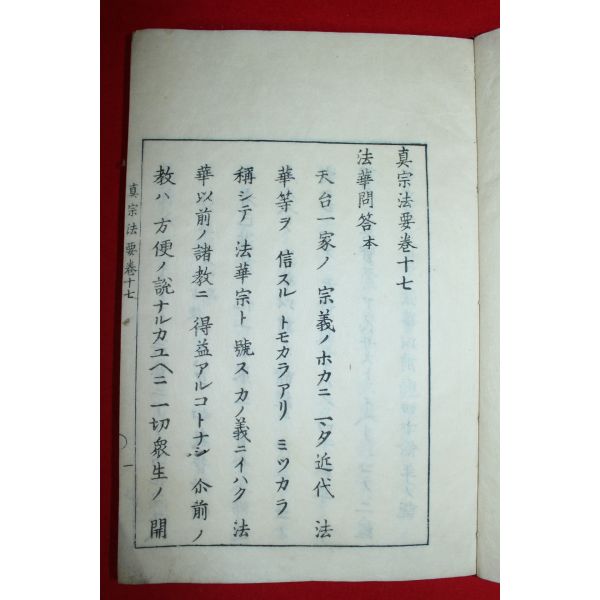 真宗法要卷十七
法華問答本
天台一家ノ宗義ノホカニマタ近代法
華等ヲ信スルトモカラアリミツカラ
稱シテ法華宗ト號スカノ義ニイハク法
華以前ノ諸教ニ得益アルコトナシ尒前ノ
教ハ方便ノ說ナルカユヘニ一切衆生ノ開
真宗法要卷十七
一